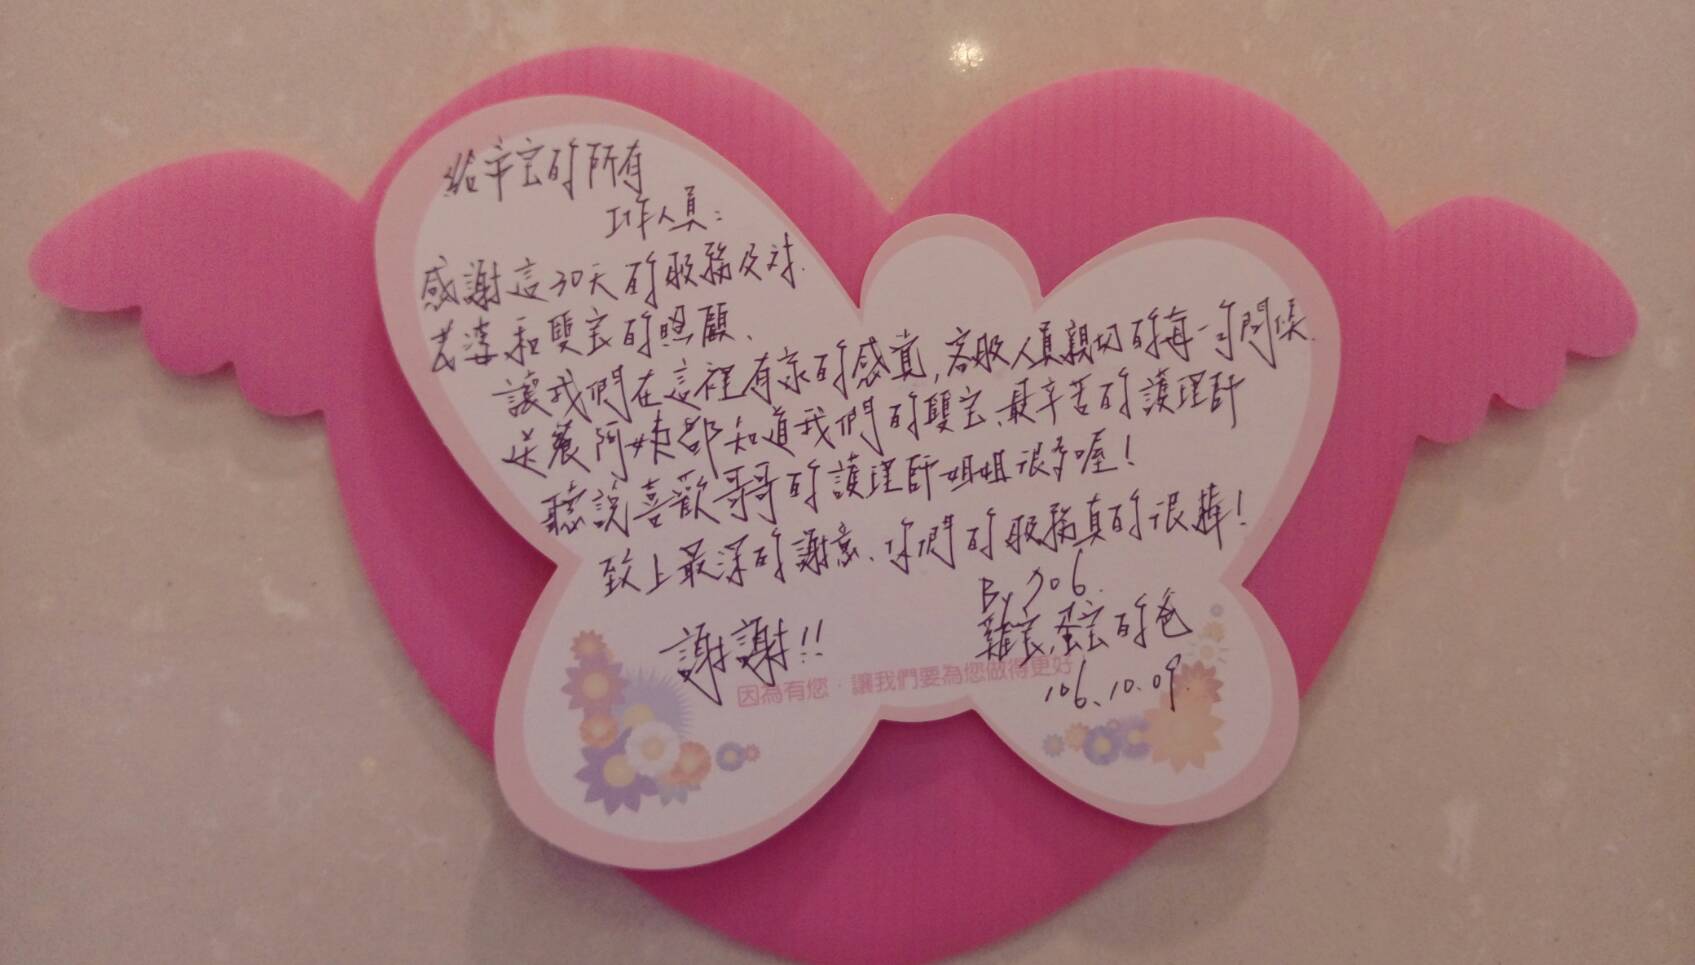 給辛宝的所有
工作人員:
感謝這30天的服務及对
老婆和雙宝的照顧、
讓我們在這裡有家的感覚,客服人員親切的每一句問候、
送餐阿姨都知道我們的雙宝、最辛苦的護理師
聽說喜歡哥哥的護理師姐姐很多喔!
致上最深的謝意、你們的服務真的很棒!
By 706.
謝謝!!
雞宝,蛋宝的爸
因為有您‧讓我們要為您做得更好
106.10.09.